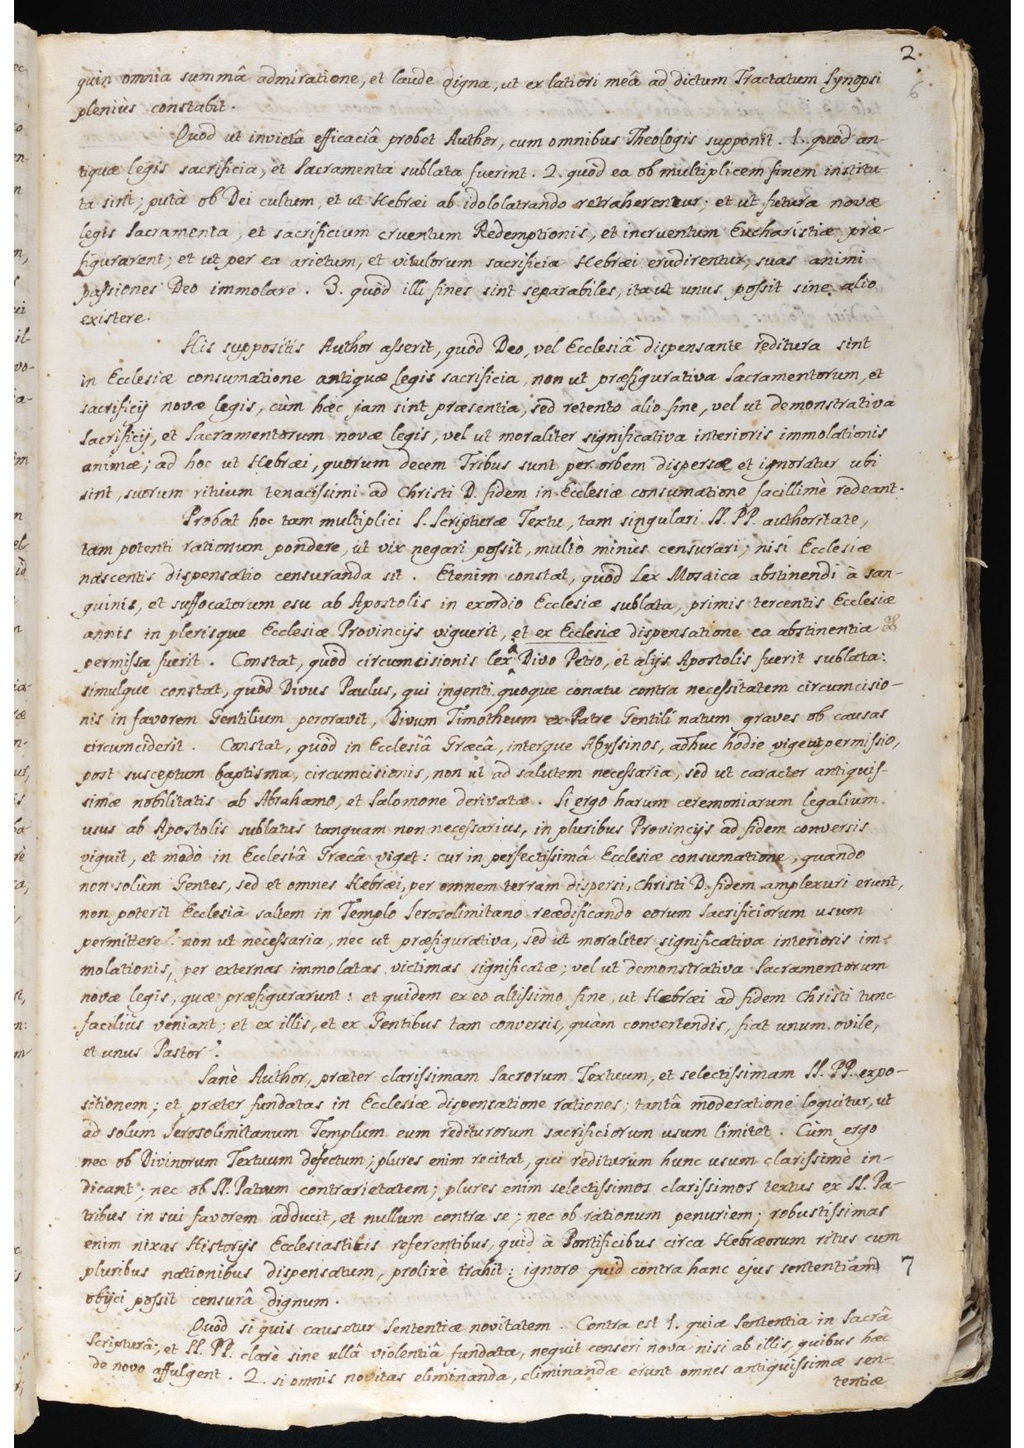 2.
6
quin omnia summâ admiratione, et laude digna, ut ex latiori meâ ad dictum Tractatum Synopsi
pleniùs constabit.
Quod ut invictâ efficaciâ probet Author, cum omnibus Theologis supponit. 1. quod an-
tiquæ legis sacrificia, et Sacramenta sublata fuerint. 2. quòd ea ob multiplicem finem institu-
ta sint; putà ob Dei cultum, et ut Hebræi ab idololatrando retraherentur; et ut futura novæ
legis Sacramenta, et sacrificium cruentum Redemptionis, et incruentum Eucharistiæ præ-
figurarent; et ut per ea arietum, et vitulorum sacrificia Hebræi erudirentur, suas animi
passiones Deo immolare. 3. quòd illi fines sint separabiles, ita ut unus possit sine alio
existere.
His suppositis Author asserit, quòd Deo, vel Ecclesiâ dispensante reditura sint
in Ecclesiæ consumatione antiquæ legis sacrificia, non ut præfigurativa Sacramentorum, et
sacrificij novæ legis, cùm hæc jam sint præsentia, sed retento alio fine, vel ut demonstrativa
Sacrificij, et Sacramentorum novæ legis, vel ut moraliter significativa interioris immolationis
animæ; ad hoc ut Hebræi, quorum decem Tribus sunt per orbem dispersæ et ignoratur ubi
sint, suorum rituum tenacissimi ad Christi D. fidem in Ecclesiæ consumatione facillimè redeant.
Probat hoc tam multiplici S. Scripturæ Textu, tam singulari SS. PP. authoritate,
tam potenti rationum pondere, ut vix negari possit, multò minus censurari; nisi Ecclesiæ
nascentis dispensatio censuranda sit. Etenim constat, quòd Lex Mosaica abstinendi à san-
guinis, et suffocatorum esu ab Apostolis in exordio Ecclesiæ sublata, primis tercentis Ecclesiæ
annis in plerisque Ecclesiæ Provincijs viguerit, et ex Ecclesiæ dispensatione ea abstinentia
permissa fuerit. Constat, quòd circumcisionis lex à Divo Petro, et alijs Apostolis fuerit sublata:
simulque constat, quòd Divus Paulus, qui ingenti quoque conatu contra necessitatem circumcisio-
nis in favorem Gentilium peroravit, Divum Timotheum ex Patre Gentili natum graves ob causas
circumciderit. Constat, quòd in Ecclesiâ Græcâ, interque Abyssinos, adhuc hodie vigeat permissio,
post susceptum baptisma, circumcisionis, non ut ad salutem necessaria, sed ut caracter antiquis-
simæ nobilitatis ab Abrahamo, et Salomone derivatæ. Si ergo harum ceremoniarum legalium
usus ab Apostolis sublatus tanquam non necessarius, in pluribus Provincijs ad fidem conversis
viguit, et modò in Ecclesiâ Græcâ viget: cur in perfectissimâ Ecclesiæ consumatione, quando
non solùm Gentes, sed et omnes Hebræi, per omnem terram dispersi, Christi D. fidem amplexuri erunt,
non poterit Ecclesia saltem in Templo Jerosolimitano reædificando eorum Sacrificiorum usum
permittere? non ut necessaria, nec ut præfigurativa, sed ut moraliter significativa interioris im-
molationis, per externas immolatas victimas significatæ; vel ut demonstrativa Sacramentorum
novæ legis, quæ præfigurarunt: et quidem ex eo altissimo fine, ut Hebræi ad fidem Christi tunc
faciliùs veniant; et ex illis, et ex Gentibus tam conversis, quàm convertendis, fiat unum ovile,
et unus Pastor?
Sanè Author, præter clarissimam Sacrorum Textuum, et selectissimam SS. PP. expo-
sitionem; et præter fundatas in Ecclesiæ dispensatione rationes; tantâ moderatione loquitur, ut
ad solum Jerosolimitanum Templum eum rediturorum sacrificiorum usum limitet. Cùm ergo
nec ob Divinorum Textuum defectum; plures enim recitat, qui rediturum hunc usum clarissimè in-
dicant; nec ob SS. Patrum contrarietatem; plures enim selectissimos clarissimos textus ex SS. Pa-
tribus in sui favorem adducit, et nullum contra se; nec ob rationum penuriem; robustissimas
enim nixas Historijs Ecclesiasticis referentibus, quid à Pontificibus circa Hebræorum ritus cum
pluribus nationibus dispensatum, prolixè trahit: ignoro quid contra hanc ejus sententiam 7
obijci possit censurâ dignum.
Quòd si quis causetur Sententiæ novitatem. Contra est 1. quia Sententia in Sacrâ
Scripturâ, et SS. PP. clarè sine ullâ violentiâ fundata, nequit censeri nova nisi ab illis, quibus hæc
de novo affulgent. 2. si omnis novitas eliminanda, eliminandæ erunt omnes antiquissimæ sen-
tentiæ